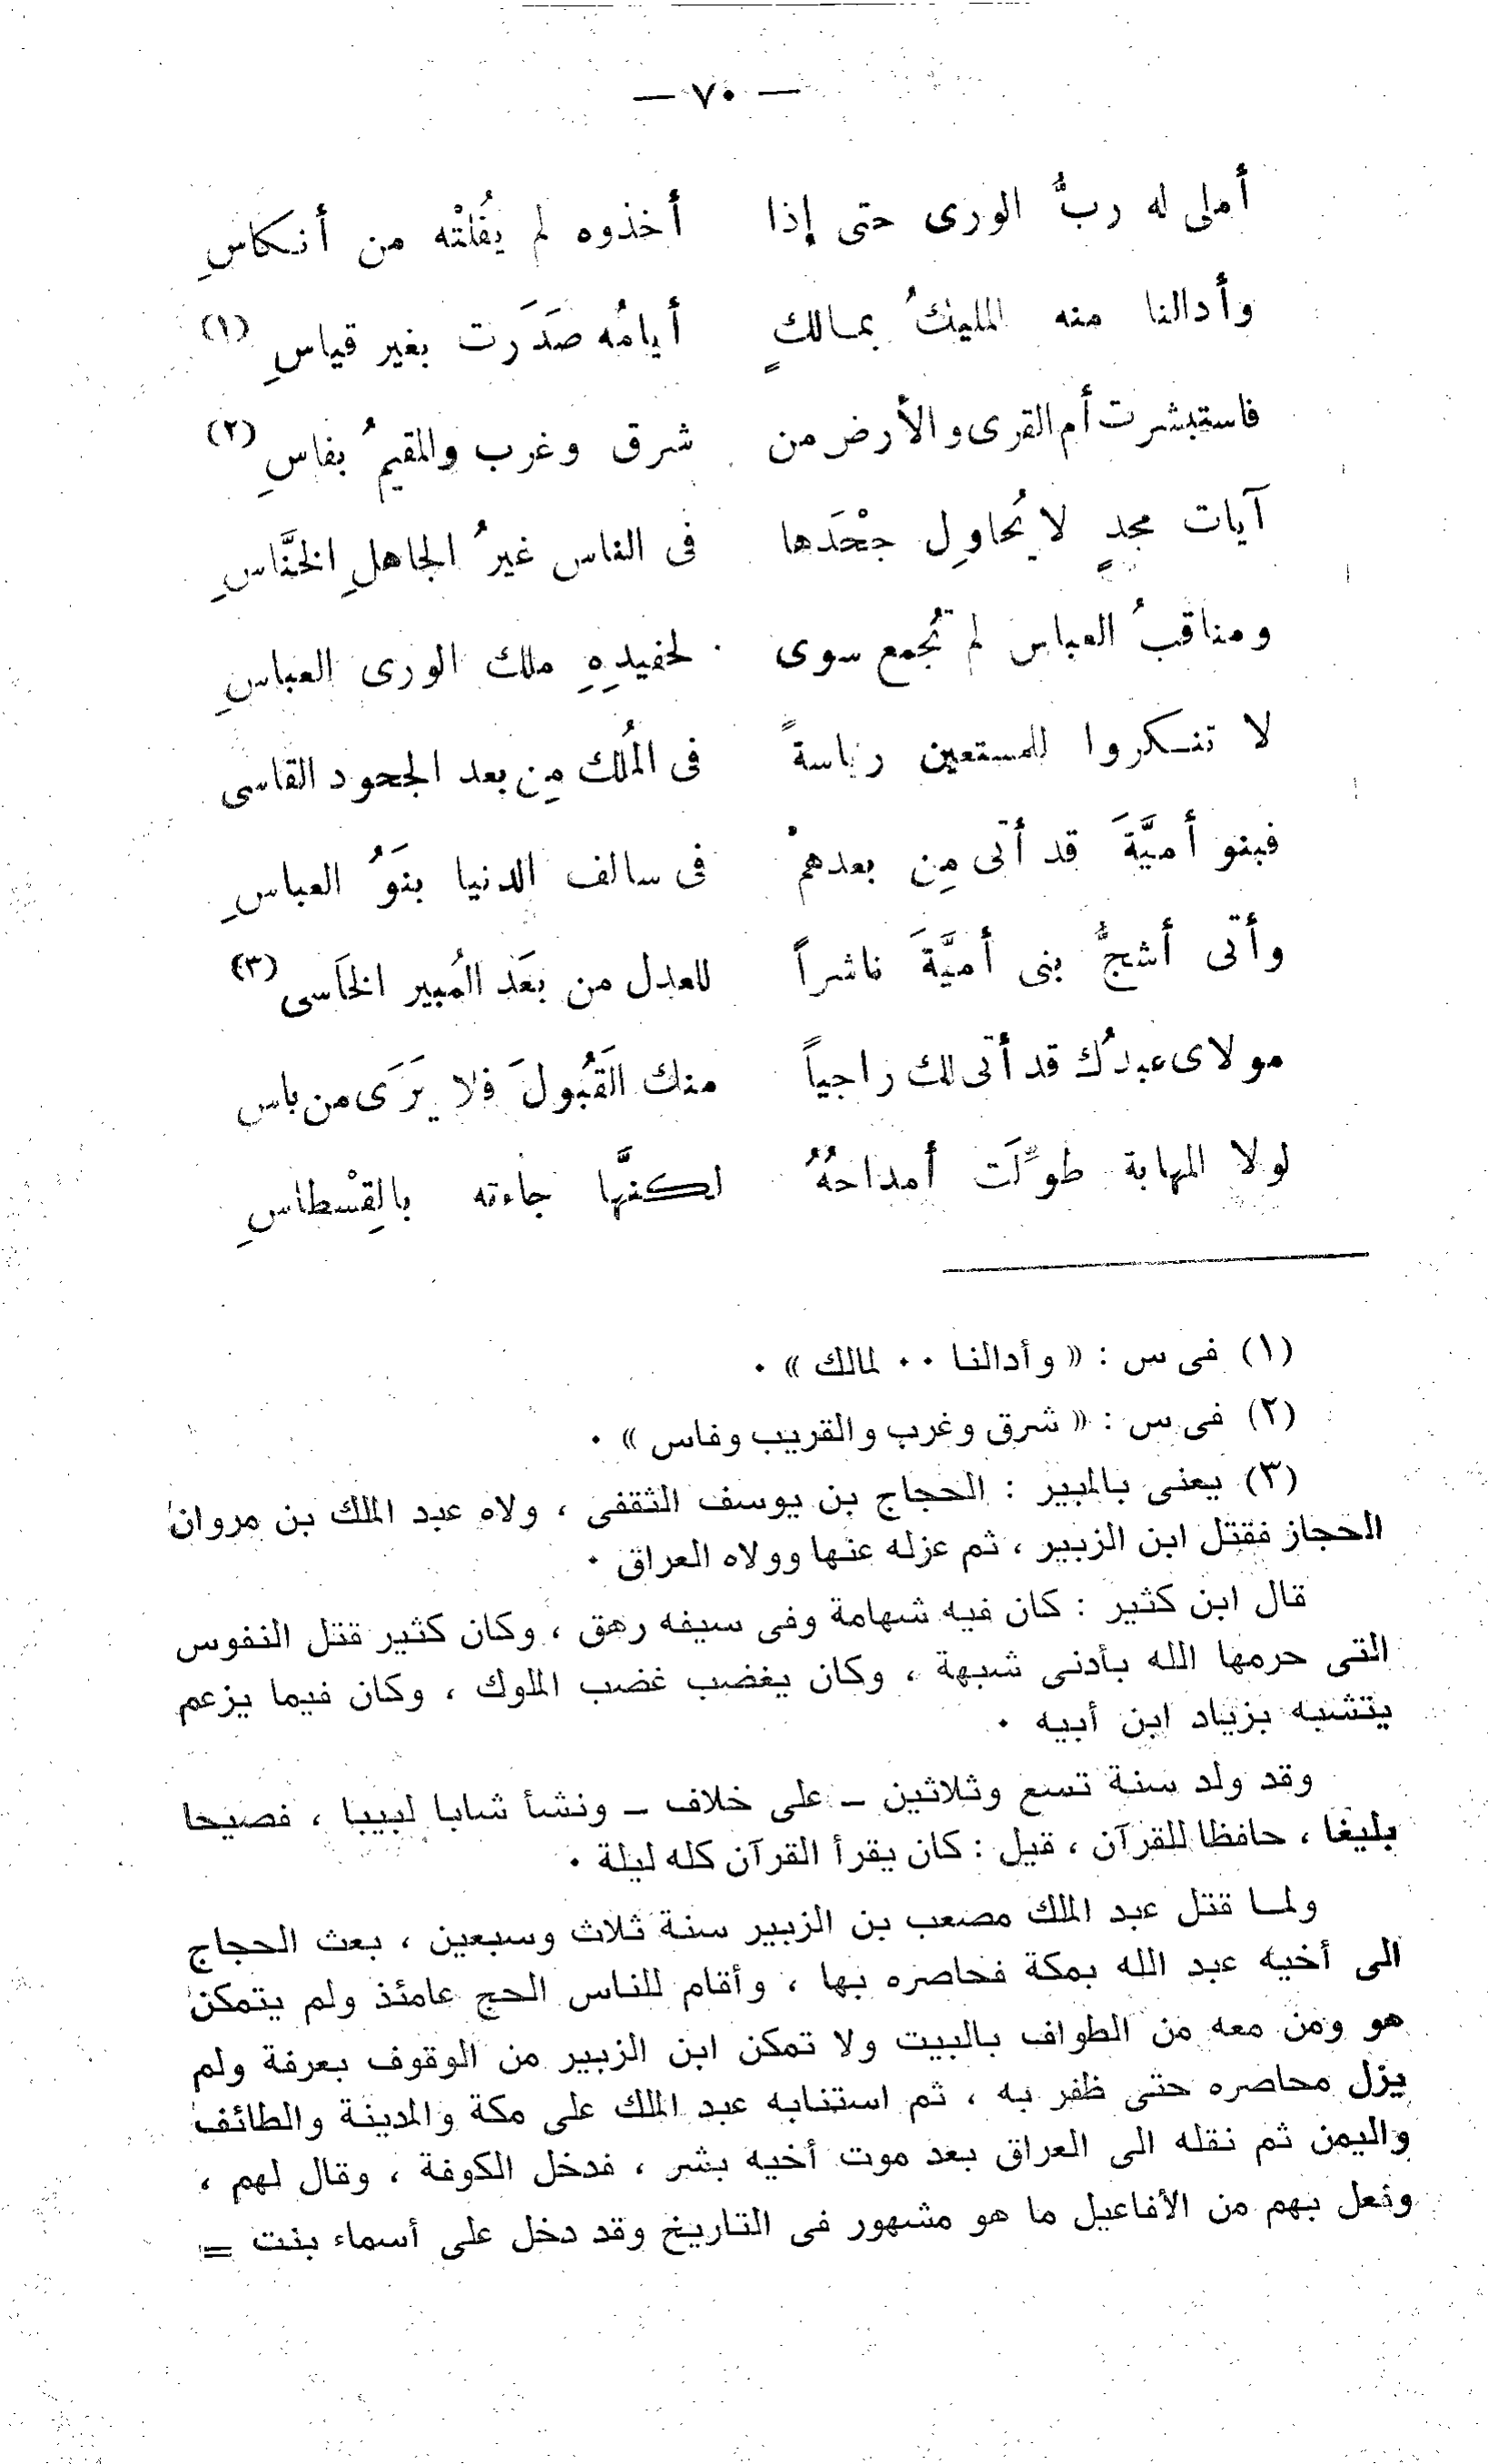 — ٧٠ —
أملى له ربُّ الورى حتى إذا أخذوه لم يُفلتْه من أنكاسِ
وأدالنا منه المليكُ بمالكٍ أيامُه صَدَرَت بغير قياسِ (١)
فاستبشرت أم القرى والأرض من شرق وغرب والمقيمُ بفاسِ (٢)
آيات مجدٍ لا يُحاوِل جحْدَها فى الناس غيرُ الجاهلِ الخنَّاسِ
ومناقبُ العباس لم تُجمع سوى لحفيدِهِ ملك الورى العباسِ
لا تنكروا للمستعين رئاسةً فى المُلك مِن بعد الجحود القاسى
فبنو أميَّةَ قد أتى مِن بعدهمْ فى سالف الدنيا بنَوُ العباسِ
وأتى أشجُّ بنى أميَّةَ ناشراً للعدل من بَعَد المُبير الخاَسى (٣)
مولاى عبدُك قد أتى لك راجياً منك القَبُولَ فلا يَرَى من باس
لولا المهابة طوِّلَت أمداحهُ لكنَّها جاءته بالقِسْطاسِ
(١) فى س : « وأدالنا ٠٠ لمالك » ٠
(٢) فى س : « شرق وغرب والقريب وفاس » ٠
(٣) يعنى بالمبير : الحجاج بن يوسف الثقفى ، ولاه عبد الملك بن مروان
الحجاز فقتل ابن الزبير ، ثم عزله عنها وولاه العراق ٠
قال ابن كثير : كان فيه شهامة وفى سيفه رهق ، وكان كثير قتل النفوس
التى حرمها الله بأدنى شبهة ، وكان يغضب غضب الملوك ، وكان فيما يزعم
يتشبه بزياد ابن أبيه ٠
وقد ولد سنة تسع وثلاثين – على خلاف – ونشأ شابا لبيبا ، فصيحا
بليغا ، حافظا للقرآن ، قيل : كان يقرأ القرآن كله ليلة ٠
ولما قتل عبد الملك مصعب بن الزبير سنة ثلاث وسبعين ، بعث الحجاج
الى أخيه عبد الله بمكة فحاصره بها ، وأقام للناس الحج عامئذ ولم يتمكن
هو ومن معه من الطواف بالبيت ولا تمكن ابن الزبير من الوقوف بعرفة ولم
يزل محاصره حتى ظفر به ، ثم استنابه عبد الملك على مكة والمدينة والطائف
واليمن ثم نقله الى العراق بعد موت أخيه بشر ، فدخل الكوفة ، وقال لهم ،
وفعل بهم من الأفاعيل ما هو مشهور فى التاريخ وقد دخل على أسماء بنت =